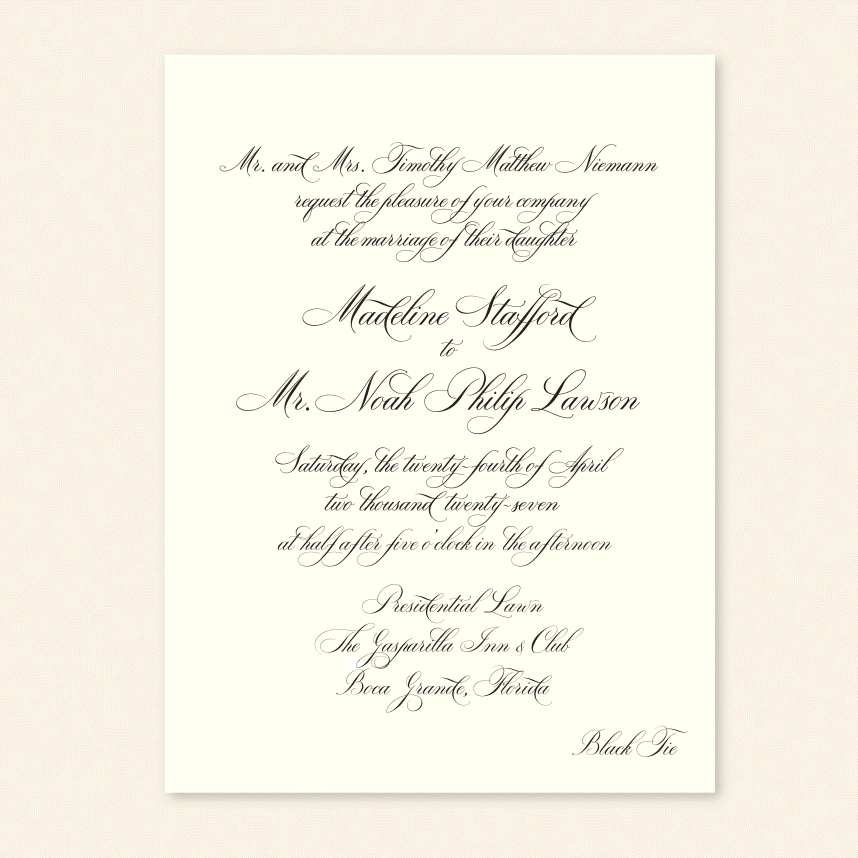 Mr. and Mrs. Timothy Matthew Niemann
request the pleasure of your company
at the marriage of their daughter
Madeline Stafford
to
Mr. Noah Philip Lawson
Saturday, the twenty-fourth of April
two thousand twenty-seven
at half after five o'clock in the afternoon
Presidential Lawn
The Gasparilla Inn & Club
Boca Grande, Florida
Black Tie